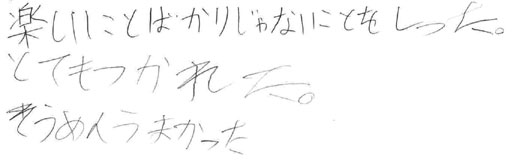 楽しいことばかりじゃないことをしった。
とてもつかれた。
そうめんうまかった